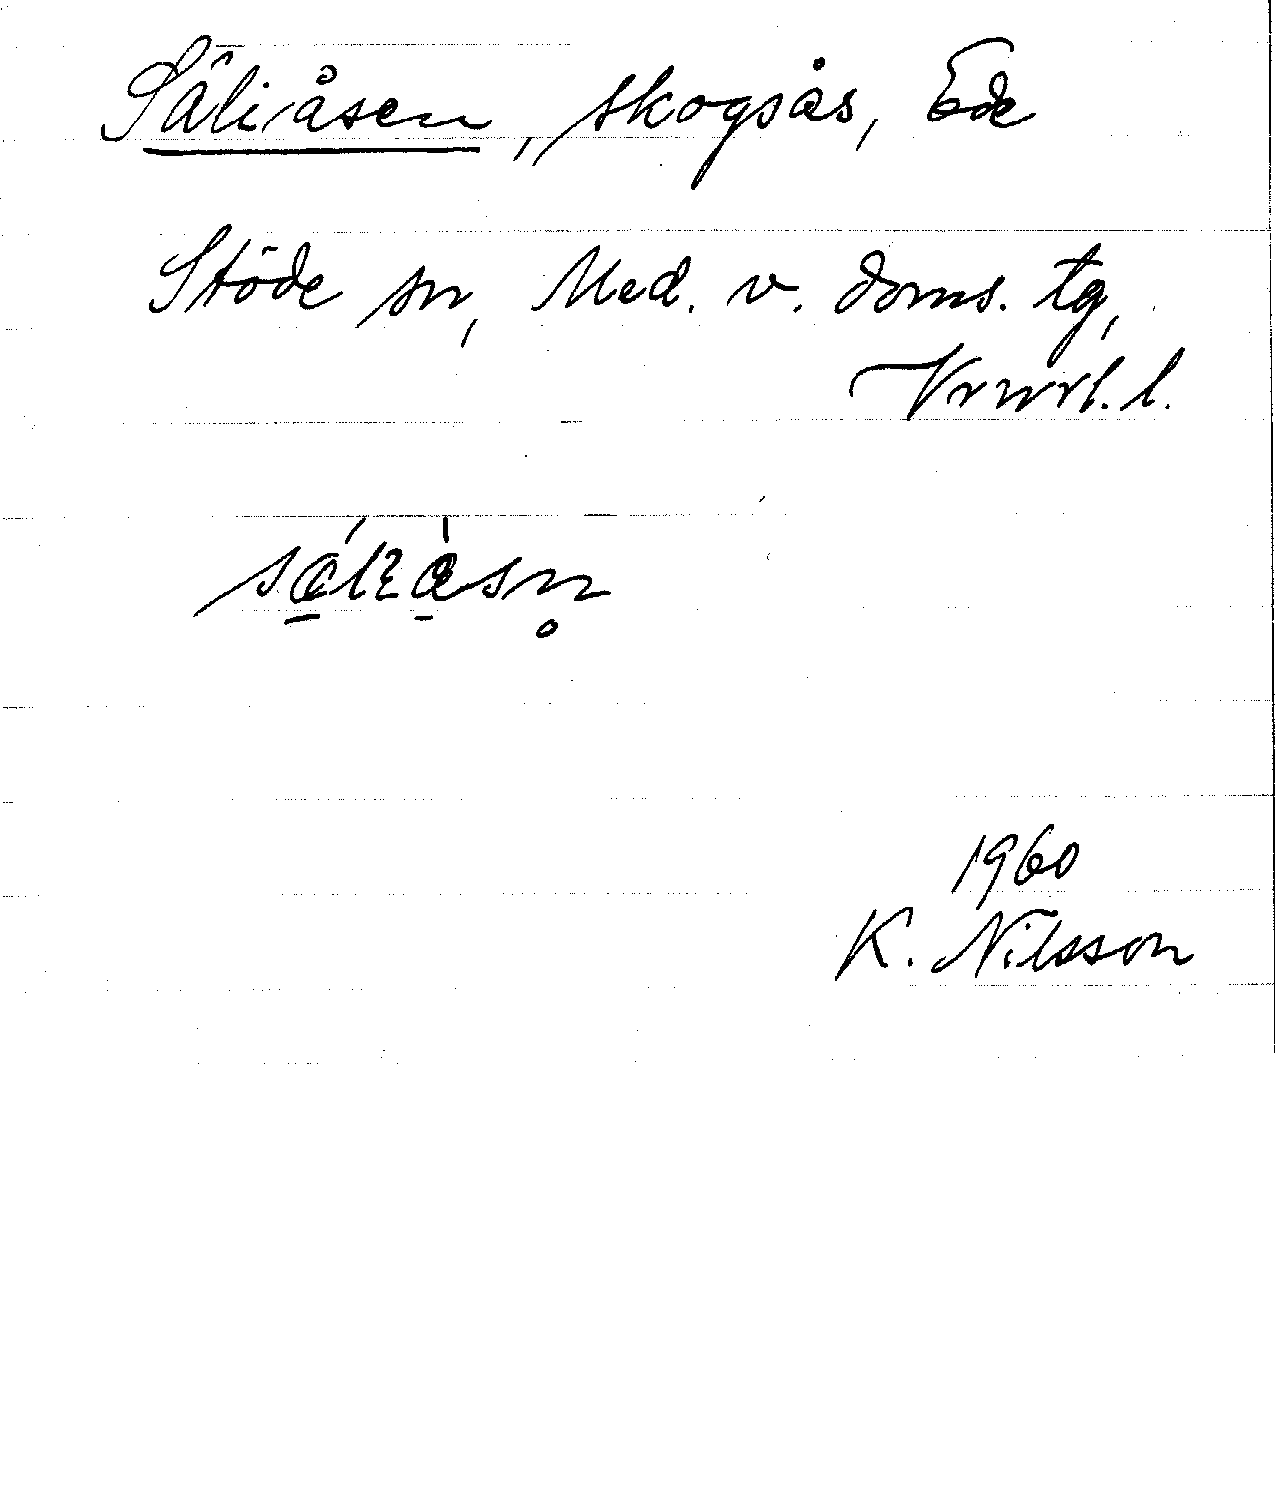 Säliåsen, skogsås, Ede
Stöde sn, Med. v. doms. tg,
Vrnrl. l.
1960
K. Nilsson